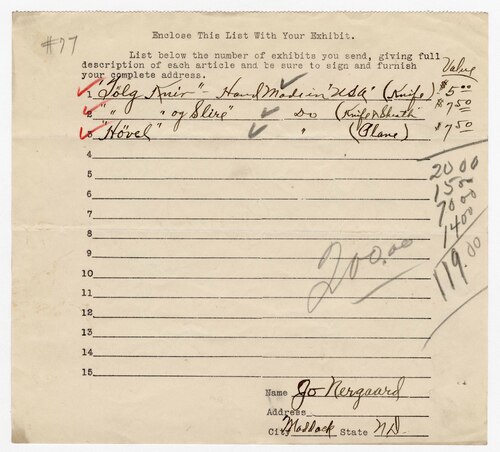 #77
Enclose This List With Your Exhibit.
List below the number of exhibits you send, giving full
description of each article and be sure to sign and furnish
your complete address.
Value
1 "Tölg Kniv" - Hand Made in "USA" (Knife) $5.00
2 " " og Slire" Do (Knife & Sheath $7.50
3 "Hövel" " (Plane) $7.50
4
5
6
7
8
9
10
11
12
13
14
15
20 00
15 00
70 00
14 00
119.00
200.00
Name Jo Nergaard
Address
City Maddock State N.D.